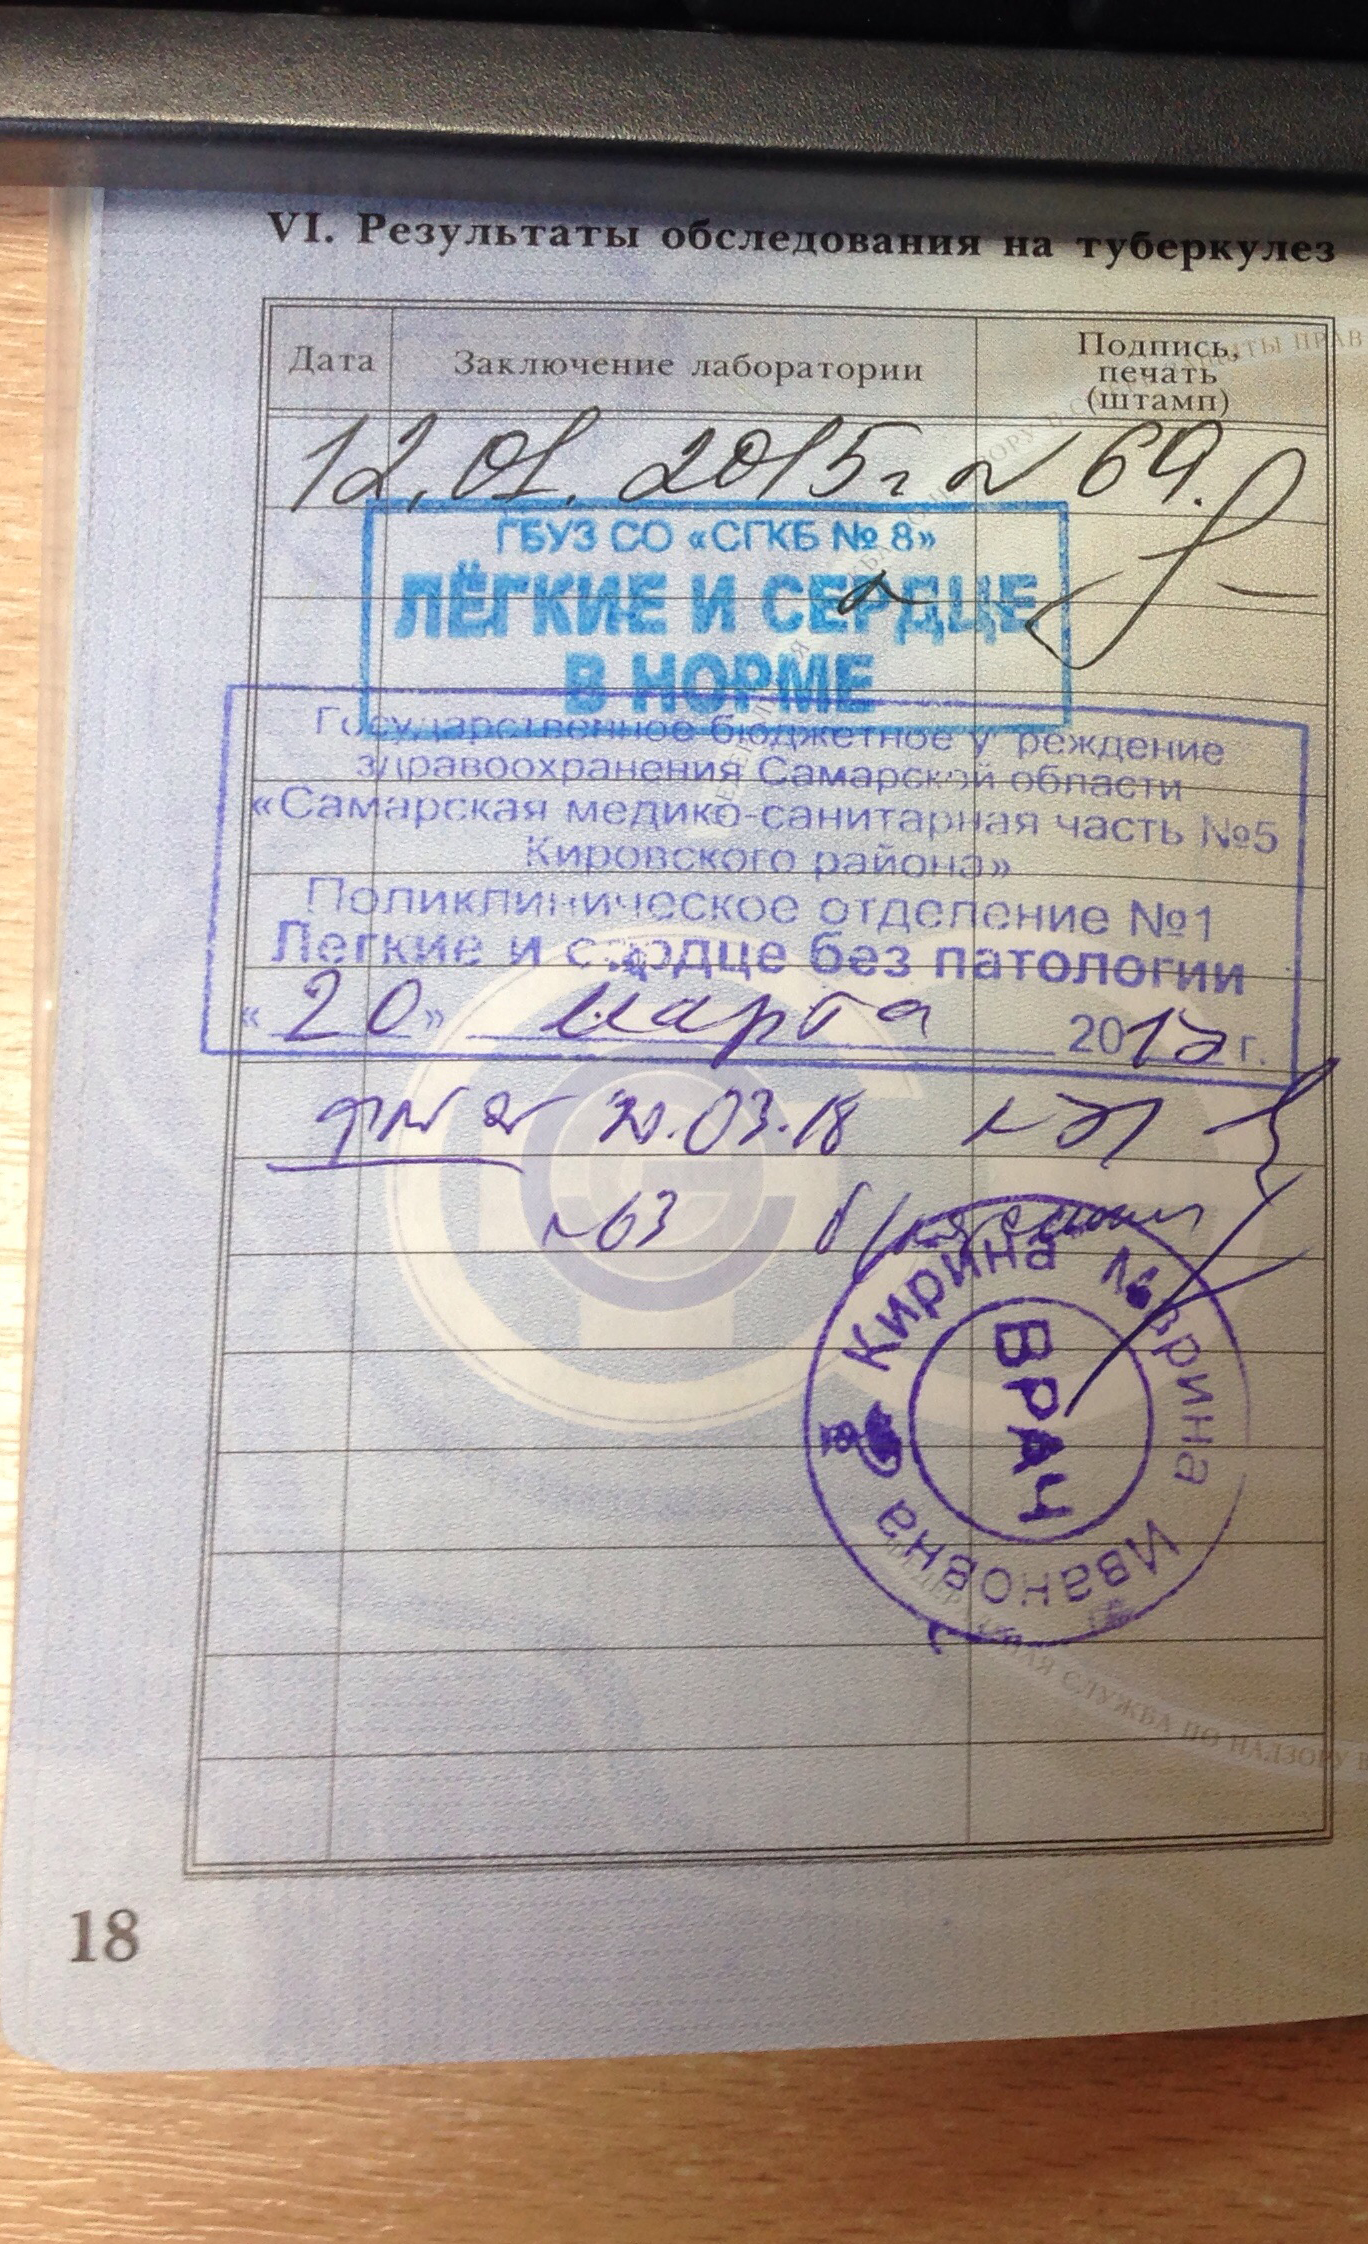 VI. Результаты обследования на туберкулез
Дата
Заключение лаборатории
Подпись,
печать
(штамп)
12.01.2015г № 69.
ГБУЗ СО «СГКБ № 8»
ЛЁГКИЕ И СЕРДЦЕ
В НОРМЕ
Государственное бюджетное учреждение
здравоохранения Самарской области
«Самарская медико-санитарная часть №5
Кировского района»
Поликлиническое отделение №1
Легкие и сердце без патологии
«20» марта 2017 г.
20.03.18
№63
Кирина Марина Ивановна
ВРАЧ
18